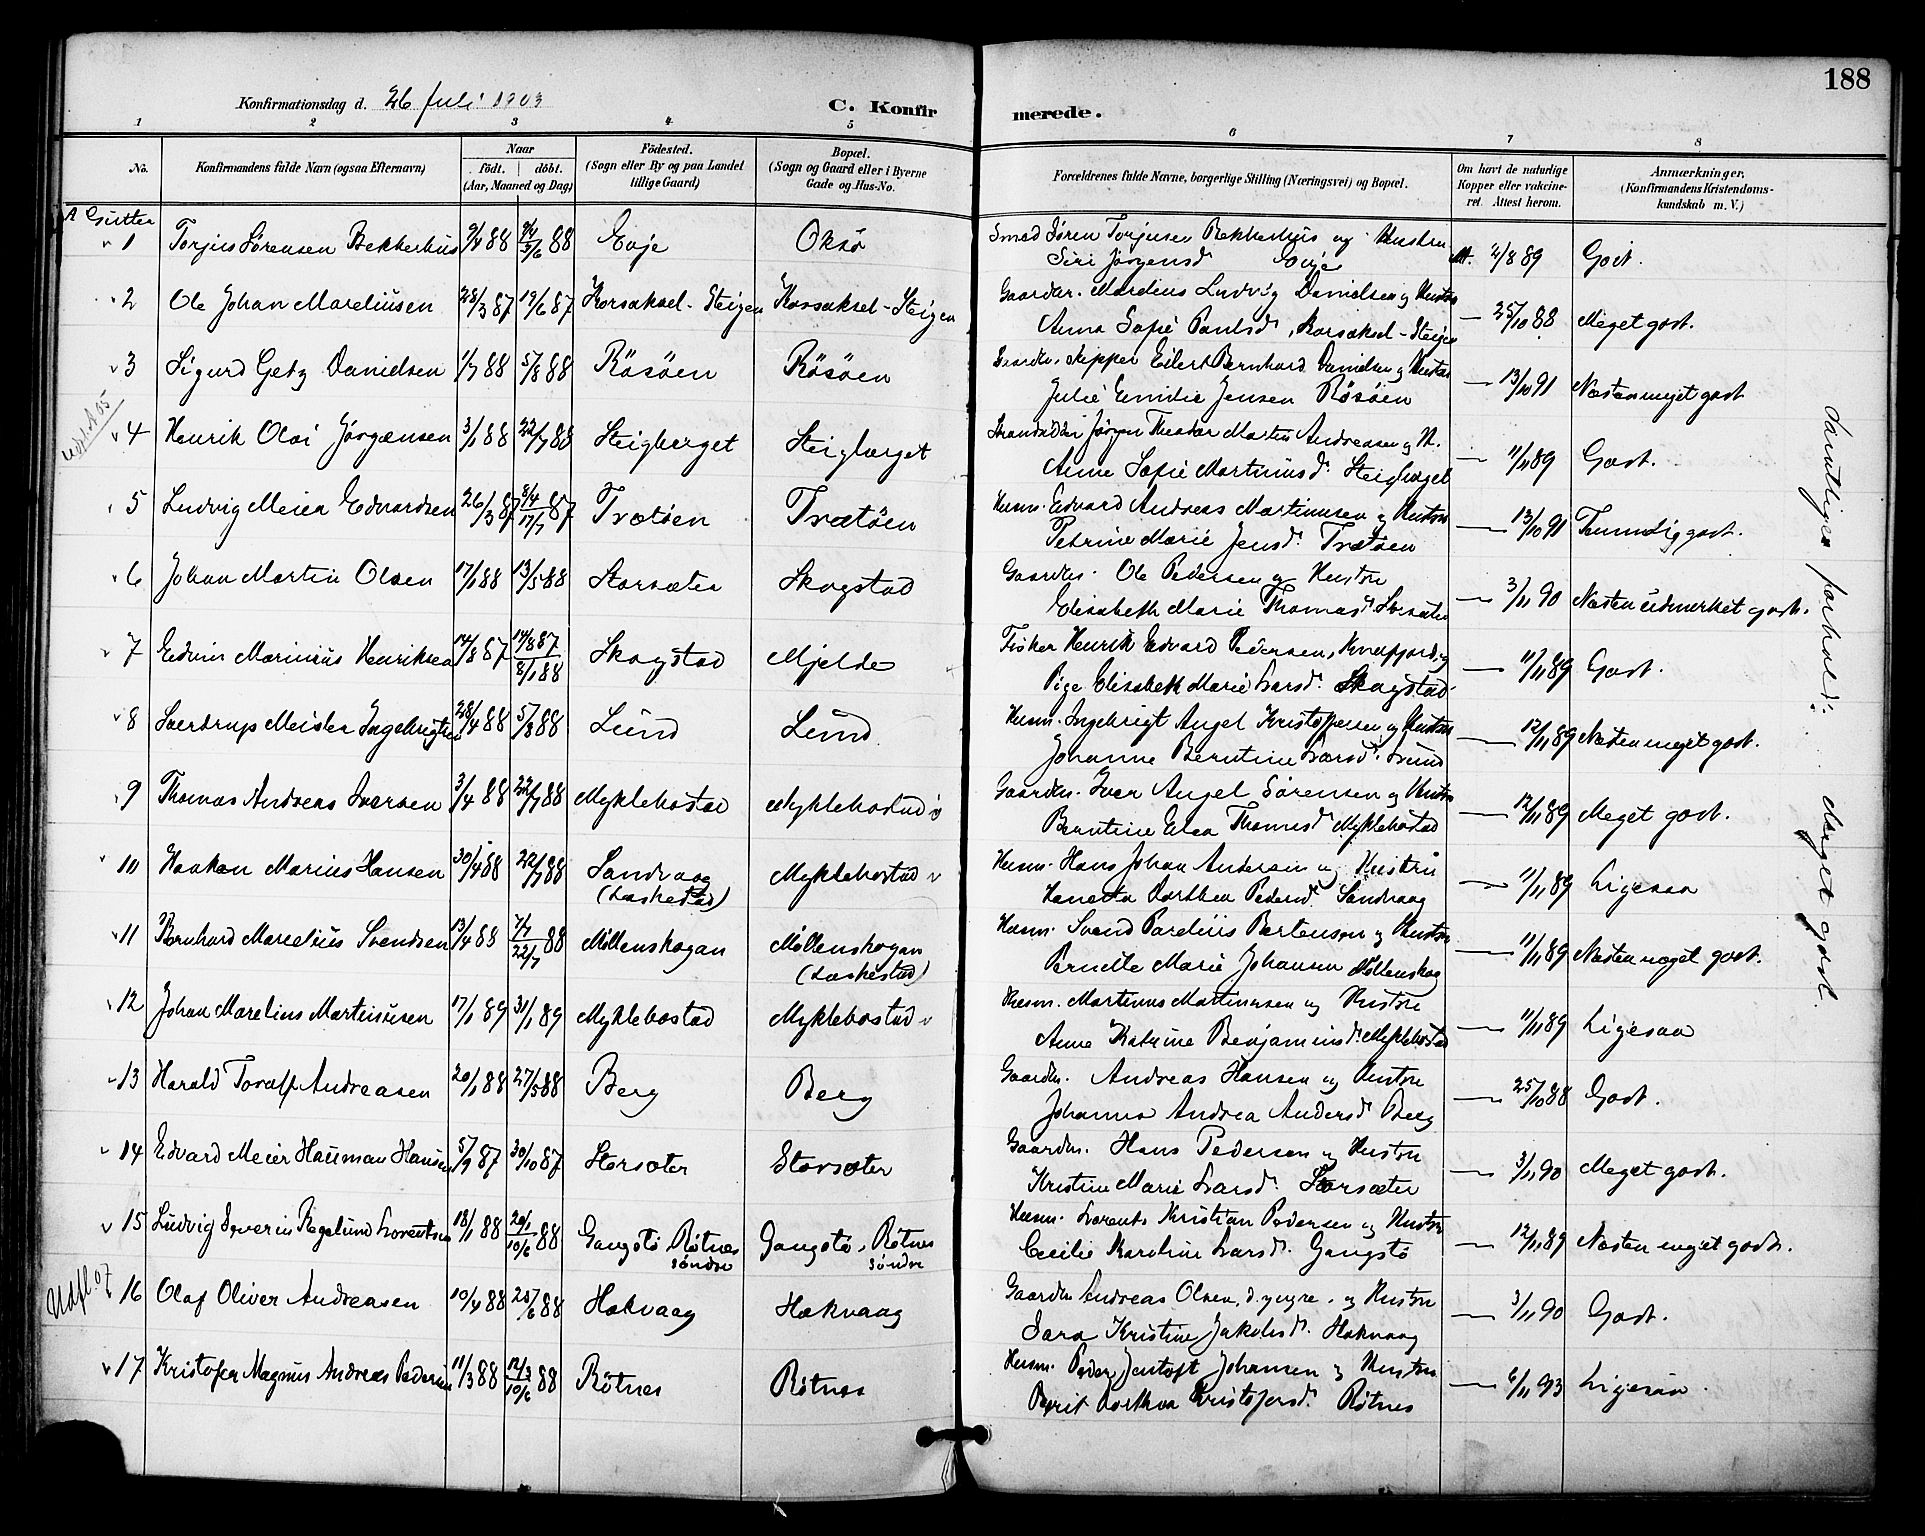 188
Konfirmationsdag d. 26 Juli 1903
C. Konfirmerede.
1 2 3 4 5 6 7 8
No.
Konfirmandens fulde Navn (ogsaa Efternavn)
Naar
födt. döbt.
(Aar, Maaned og Dag)
Födested.
(Sogn eller By og paa Landet
tillige Gaard)
Bopæl.
(Sogn og Gaard eller i Byerne
Gade og Hus-No.
Forældrenes fulde Navne, borgerlige Stilling (Næringsvei) og Bopæl.
Om havt de naturlige
Kopper eller vakcine-
ret. Attest herom.
Anmærkninger.
(Konfirmandens Kristendoms-
kundskab m. V.)
A Gutter
1 Torjus Sörensen Bekkerhus 9/4 88 9/4 3/6 88 Evje Oksö
Smed Sören Torjusen Bekkerhus og Hustru
Siri Jörgensd Evje
At. 4/8 89 Godt.
2 Ole Johan Mareliusen 28/3 87 19/6 87 Korsaksel-Steigen Korsaksel-Steigen
Gaardbr. Marelius Ludvig Danielsen og Hustru
Anna Sofie Paulsd. Korsaksel-Steigen
— 25/10 88 Meget godt.
3 Sigurd Getz Danielsen 1/7 88 5/8 88 Rösöen Rösöen
Skipper Eilert Bernhard Danielsen og Hustru
Julie Emilie Jensen Rösöen
— 13/10 91 Næsten meget godt
4 Henrik Olai Jörgensen 3/1 88 22/7 88 Steigberget Steigberget
Strandsidder Jörgen Theodor Martin Andreasen og H.
Anne Sofie Martinusd. Steigberget
— 11/11 89 Godt.
5 Ludvig Meier Edvardsen 26/3 87 8/4 17/7 87 Trætöen Trætöen
Husm. Edvard Andreas Martinusen og Hustru
Petrine Marie Jensd. Trætöen
— 13/10 91 Temmelig godt.
6 Johan Martin Olsen 17/1 88 13/5 88 Storsæter Skogstad
Gaardbr. Ole Pedersen og Hustru
Elisabeth Marie Thomasd. Storsæter
— 3/11 90 Næsten udmerket godt.
7 Edvin Marinius Henriksen 14/8 87 14/8 87 8/1 88 Skogstad Mjelde
Fisker Henrik Edvard Pedersen, og
Pige Elisabeth Marie Larsd. Skogstad
— 11/11 89 Godt.
8 Sverdrup Meister Ingebrigtsen 28/4 88 5/8 88 Lund Lund
Husm. Ingebrigt Angel Kristoffersen og Hustru
Johanne Berntine Larsd. Lund
— 12/11 89 Næsten meget godt.
9 Thomas Andreas Iversen 3/4 88 22/7 88 Myklebostad Myklebostad
Gaardbr. Iver Angel Sörensen og Hustru
Berntine Elea Thomasd. Myklebostad
— 12/11 89 Meget godt.
10 Haakon Marius Hansen 30/4 88 22/7 88 Sandvaag (Laskestad) Myklebostad
Husm. Hans Johan Andersen og Hustru
Hanetta Dorthea Pedersd. Sandvaag
— 11/11 89 Ligesaa
11 Bernhard Marelius Svendsen 13/4 88 7/7 22/7 88 Möllenskogan Möllenskogan (Laskestad)
Husm. Svend Pardeliis Bertensen og Hustru
Pernette Marie Johansen Möllenskog
— 11/11 89 Næsten meget godt.
12 Johan Marelius Martinusen 17/1 89 31/1 89 Myklebostad Myklebostad
Husm. Martinus Martinusen og Hustru
Anne Katrine Benjaminsd. Myklebostad
— 11/11 89 Ligesaa
13 Harald Toralf Andreasen 20/1 88 27/5 88 Berg Berg
Gaardbr. Andreas Hansen og Hustru
Johanna Andrea Andersd. Berg
— 25/10 88 Godt.
14 Edvard Meier Hauman Hansen 5/9 87 30/10 87 Storsæter Storsæter
Gaardbr. Hans Pedersen og Hustru
Kristine Marie Larsd. Storsæter
— 3/11 90 Meget godt.
15 Ludvig Severin Regelund Lorentsen 18/1 88 20/1 10/6 88 Gangstö, Rötnes söndre Gangstö, Rötnes söndre
Husm. Lorents Kristian Pedersen og Hustru
Cecilie Karoline Larsd. Gangstö
— 12/11 89 Næsten meget godt.
Udfl. 07 16 Olaf Oliver Andreasen 10/4 88 25/6 88 Hakvaag Hakvaag
Gaardbr. Andreas Olsen, d. yngre. og Hustru
Sara Kristine Jakobsd. Hakvaag
— 3/11 90 Godt.
17 Kristofer Magnus Andreas Pedersen 11/3 88 12/3 10/6 88 Rötnes Rötnes
Husm. Peder Jentoft Johansen og Hustru
Berit Dorthea Kristofersd. Rötnes
— 6/11 93 Ligesaa.
Samtliges forhold: Meget godt.